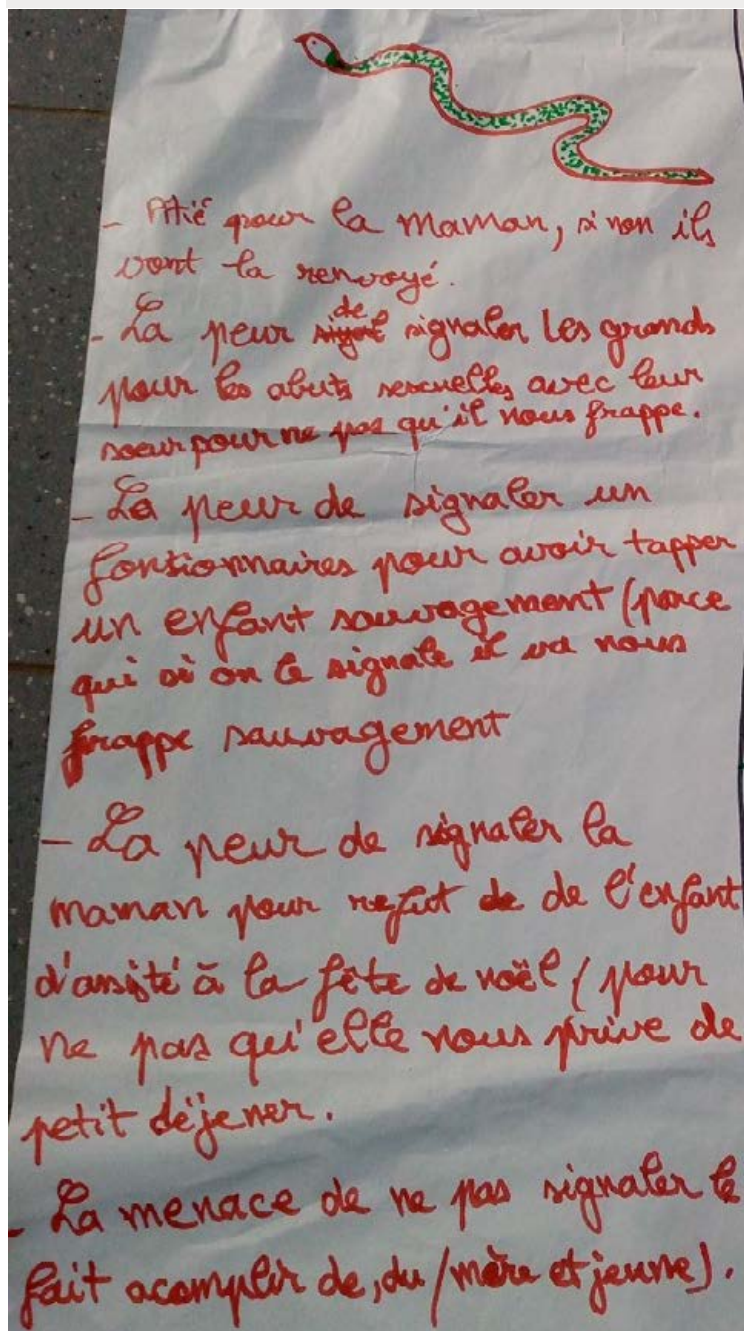 - Pitié pour la maman, si non ils
vont la renvoyé.
- La peur de signaler les grands
pour les abuts sexuelles avec leur
soeur pour ne pas qu'il nous frappe.
- La peur de signaler un
fonsionnaires pour avoir tapper
un enfant sauvagement (parce
qui si on le signale il va nous
frappe sauvagement
- La peur de signaler la
maman pour refut de de l'enfant
d'assisté à la fête de noël (pour
ne pas qu'elle nous prive de
petit déjener.
- La menace de ne pas signaler le
fait acomplir de, du (mère et jeune).